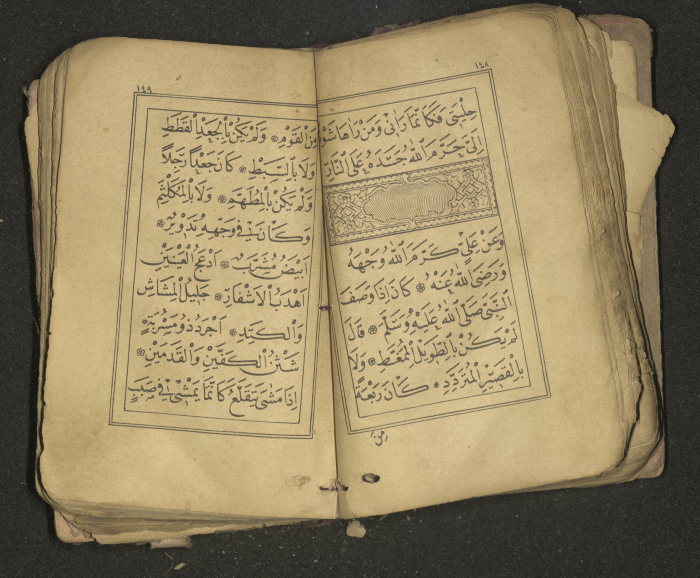 ١٤٨
حِلْيَتِى فَكَاَنَّمَا رَاٰنِى وَمَنْ رَاٰهَا شَوْقًا
اِلَىَّ حَرَّمَ اللّٰهُ جَسَدَهُ عَلَى النَّارِ
وَعَنْ عَلِىٍّ كَرَّمَ اللّٰهُ وَجْهَهُ
وَرَضِىَ اللّٰهُ عَنْهُ ۞ كَانَ اِذَا وَصَفَ
النَّبِىَّ صَلَّى اللّٰهُ عَلَيْهِ وَسَلَّمَ ۞ قَالَ
لَمْ يَكُنْ بِالطَّوِيلِ الْمُمَغَّطِ ۞ وَلَا
بِالْقَصِيرِ الْمُتَرَدِّدِ ۞ كَانَ رَبْعَةً
مِنَ
١٤٩
مِنَ الْقَوْمِ ۞ وَلَمْ يَكُنْ بِالْجَعْدِ الْقَطَطِ
وَلَا بِالسَّبْطِ ۞ كَانَ جَعْدًا رَجِلًا
وَلَمْ يَكُنْ بِالْمُطَهَّمِ ۞ وَلَا بِالْمُكَلْثَمِ
وَكَانَ فِى وَجْهِهِ تَدْوِيرٌ ۞
اَبْيَضُ مُشْرَبٌ ۞ اَدْعَجُ الْعَيْنَيْنِ
اَهْدَبُ الْاَشْفَارِ ۞ جَلِيلُ الْمُشَاشِ
وَالْكَتَدِ ۞ اَجْرَدُ ذُو مَسْرُبَةٍ ۞
شَثْنُ الْكَفَّيْنِ وَالْقَدَمَيْنِ ۞
اِذَا مَشٰى يَتَقَلَّعُ كَاَنَّمَا يَمْشِى فِى صَبَبٍ